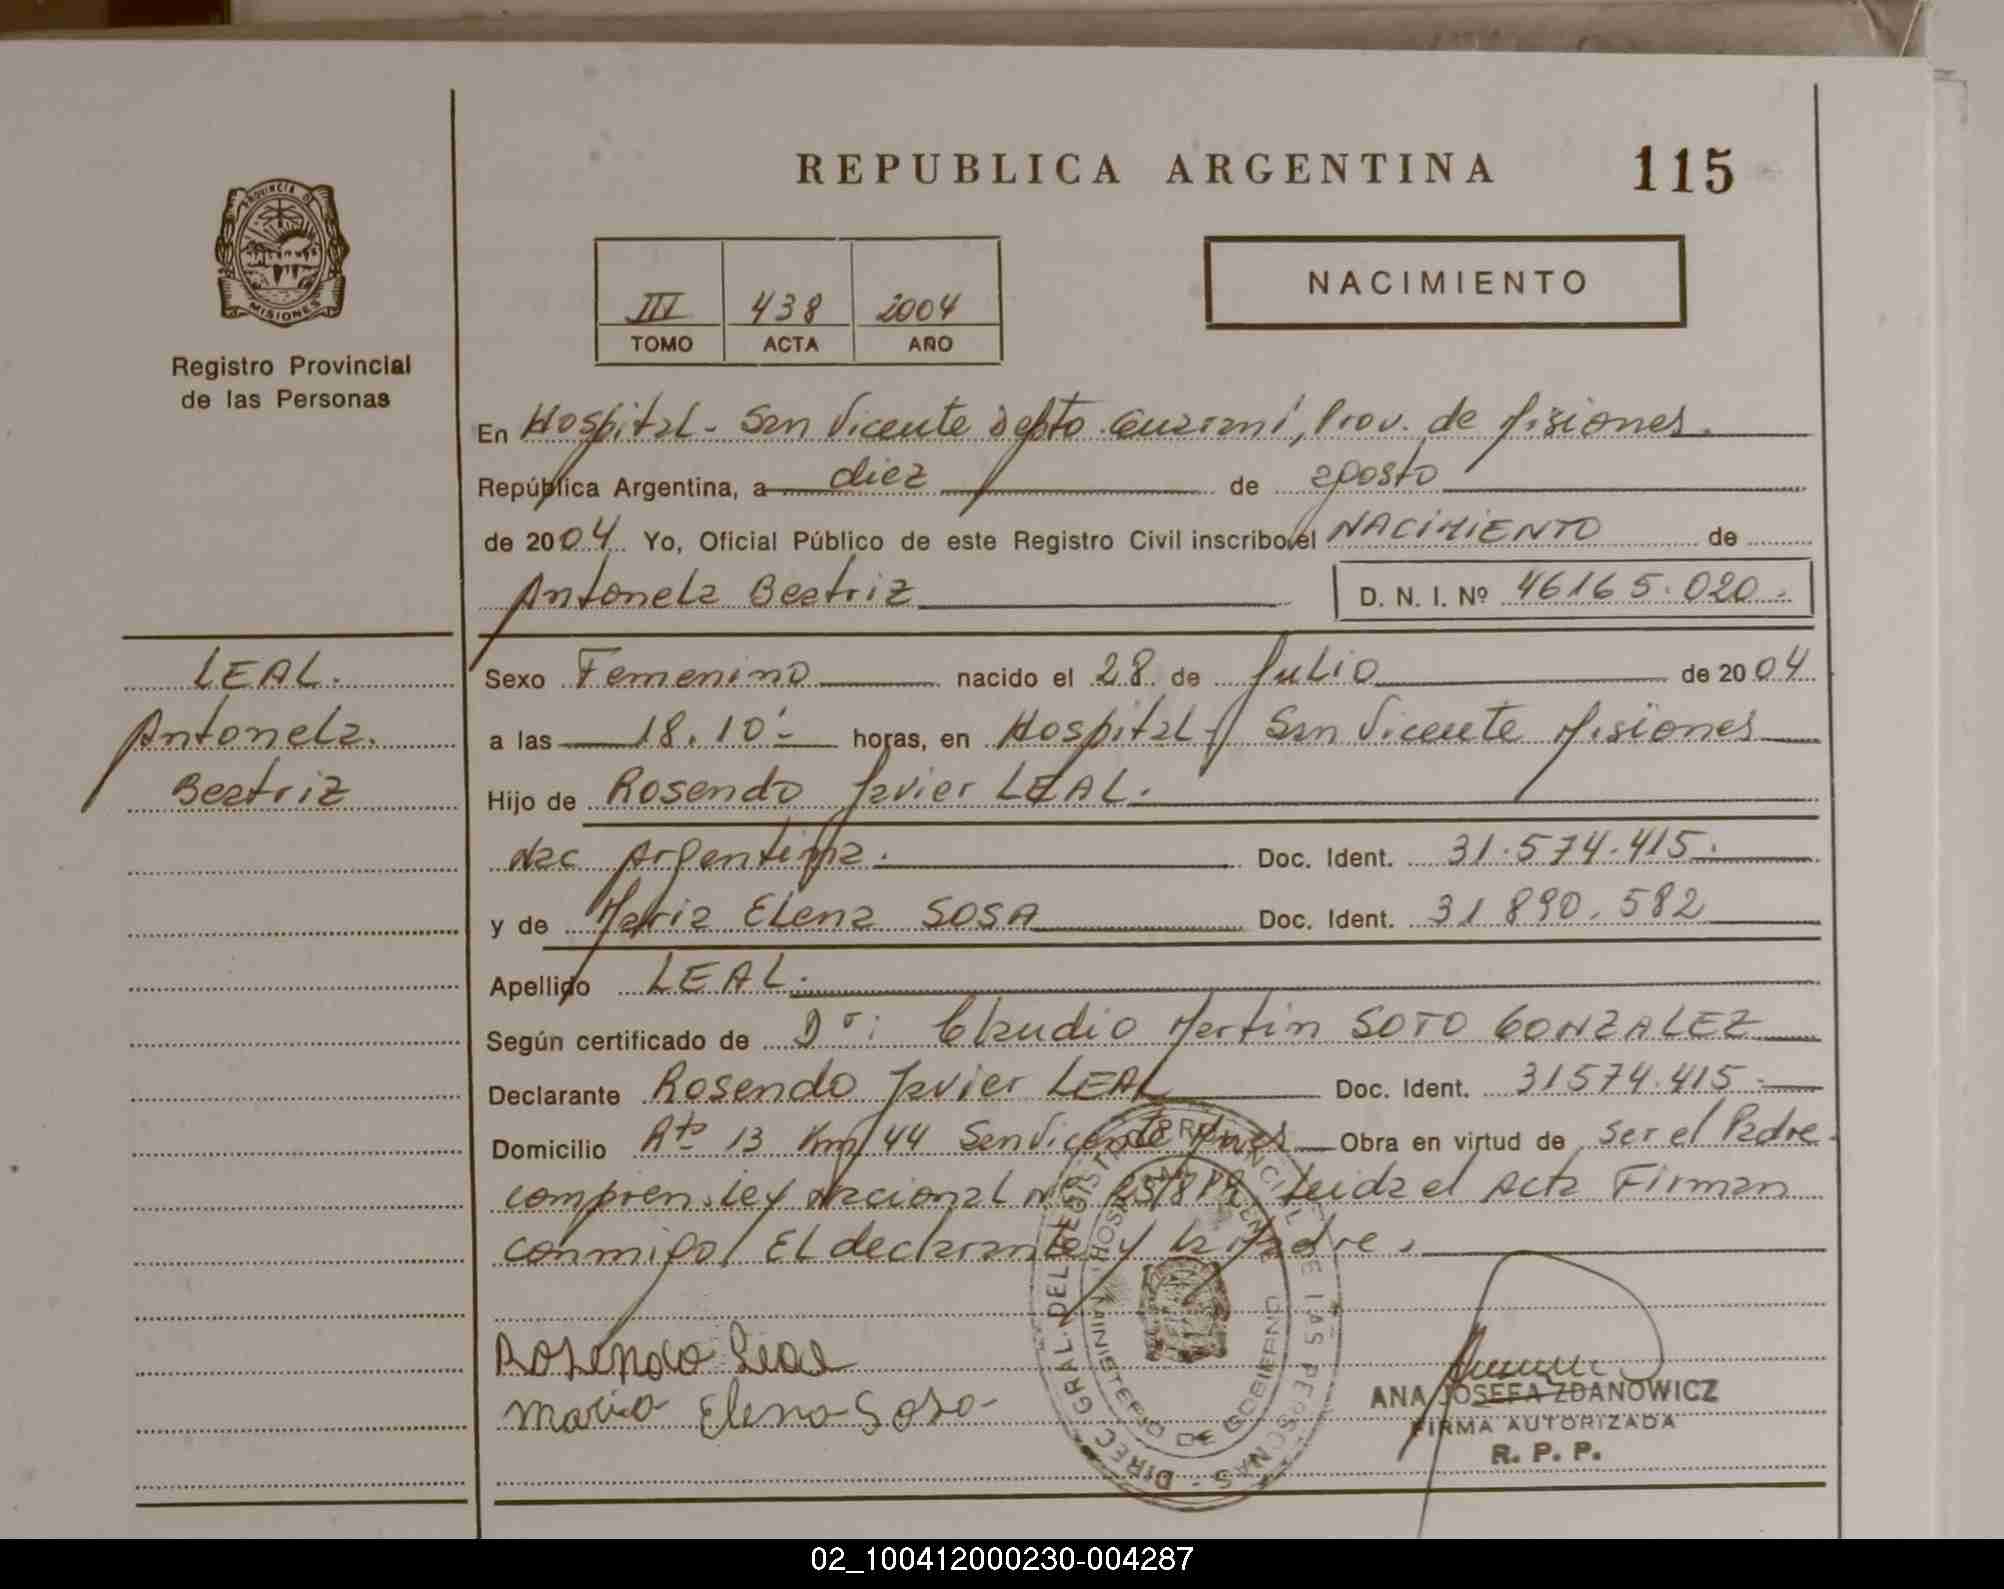 REPUBLICA ARGENTINA 115
PROVINCIA DE
MISIONES
Registro Provincial
de las Personas
NACIMIENTO
III 438 2004
TOMO ACTA AÑO
En Hospital - San Vicente Depto Guaraní, Prov. de Misiones.
República Argentina, a diez de agosto
de 2004 Yo, Oficial Público de este Registro Civil inscribo el NACIMIENTO de
Antonela Beatriz D. N. I. Nº 46165.020.
LEAL.
Antonela.
Beatriz
Sexo Femenino nacido el 28 de Julio de 2004
a las 18.10'- horas, en Hospital - San Vicente Misiones
Hijo de Rosendo Javier LEAL.
Nac Argentina. Doc. Ident. 31.574.415.
y de Maria Elena SOSA Doc. Ident. 31 890.582
Apellido LEAL.
Según certificado de Dr: Claudio Martin SOTO GONZALEZ
Declarante Rosendo Javier LEAL Doc. Ident. 31574.415-
Domicilio Rta 13 Km 44 San Vicente Mnes Obra en virtud de ser el Padre.
compren. Ley Nacional Leida el Acta Firman
conmigo El declarante y la Madre.
Rosendo Leal
Maria Elena Sosa
DIREC. GRAL. DEL REGISTRO PROVINCIAL DE LAS PERSONAS
MINISTERIO DE GOBIERNO
ANA JOSEFA ZDANOWICZ
FIRMA AUTORIZADA
R. P. P.
02_100412000230-004287